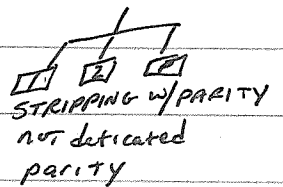 1 2 P
STRIPPING W/PARITY
not deticated
parity